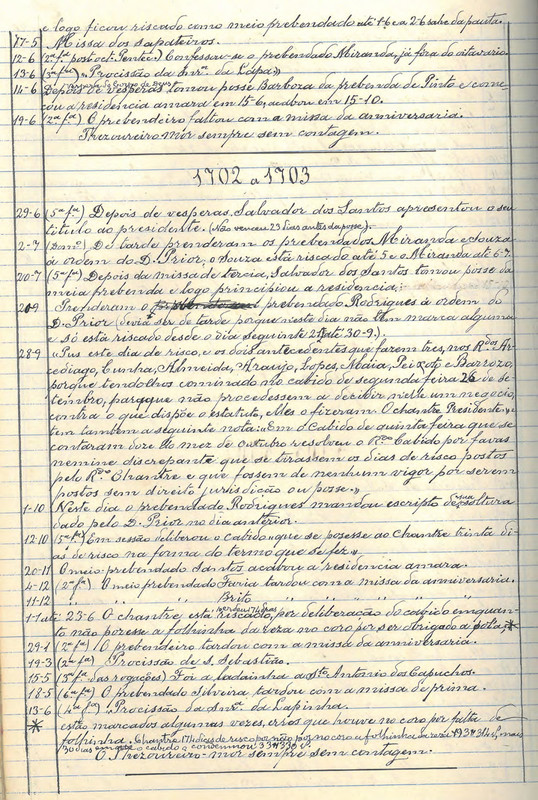 e logo ficou riscado como meio prebendado até 16 e a 26 sahe da pauta.
17-5 Missa dos sapateiros.
12-6 (2ª fª post oct. Pentec.) Confessou-se o prebendado Miranda, já fora do oitavario.
13-6 (3ª fª) «Procissão da Snrª da Lapa»
14-6 Depois de vesperas tomou posse Barboza da prebenda de Pinto e come-
çou a residencia amara em 15-6, acabou em 15-10.
19-6 (2ª fª) O prebendeiro faltou com a missa da anniversaria.
Thezoureiro-Mór sempre sem contagem.
1702 a 1703
29-6 (5ª fª) Depois de vesperas, Salvador dos Santos apresentou o seu
titulo ao presidente. (Não venceu 23 dias antes da posse).
2-7 (Domº) De tarde prenderam os prebendados Miranda e Souza
à ordem do D. Prior, o Souza está riscado até 5 e o Miranda até 6-7.
20-7 (5ª fª) Depois da missa de tercia, Salvador dos Santos tomou posse da
meia prebenda e logo principiou a residencia.
20-9 Prenderam o prebendado Rodrigues à ordem do
D. Prior (devia ser de tarde porque neste dia não tem marca alguma
e só está riscado desde o dia seguinte 21 até 30-9.).
28-9 «Pus este dia de risco, e os dois antecedentes que fazem tres, nos Rdos Ar-
cediago, Cunha, Almeida, Araujo, Lopes, Maia, Peixoto e Barrozo,
porque tendolhos cominado no cabido de segunda feira 26 de se-
tembro, para que não procedessem a decidir nelle um negocio,
contra o que dispõe o estatuto, elles o fizeram. O chantre Presidente» e
tem tambem a seguinte nota: «Em o Cabido de quinta feira que se
contaram doze do mez de outubro resolveu o Rmo Cabido por favas
nemine discrepante que se tirassem os dias de risco postos
pelo Rdo Chantre e que fossem de nenhum vigor por serem
postos sem direito, jurisdicção ou posse.»
1-10 (Neste dia o prebendado Rodrigues mandou escripto de sua soltura
dado pelo D. Prior no dia anterior.
12-10 (5ª fª) Em sessão deliberou o cabido «que se posesse ao Chantre trinta di-
as de risco na forma do termo que se fez».
20-11 O meio-prebendado Santos acabou a residencia amara.
4-12 (2ª fª) O meio prebendado Faria tardou com a missa da anniversaria.
11-12 " " " Brito " " " " "
1-1 até 23-6 O chantre está riscado, por deliberação do cabido emquan-
to não pozesse a folhinha da reza no coro por ser obrigado a pol-a,*
29-1 (2ª fª) O prebendeiro tardou com a missa da anniversaria.
19-3 (2ª fª) Procissão de S. Sebastião.
15-5 (3ª fª das rogações) Foi a ladainha a Sto Antonio dos Capuchos.
18-5 (6ª fª) O prebendado Silveira tardou com a missa de prima.
13-6 (4ª fª) «Procissão da Snrª da Lapinha.
* estão marcados algumas vezes, erros que houve no coro por falta de
folhinha. Chantre 174 dias de risco por não por no coro a folhinha
30 dias o cabido o condemnou
O Thezoureiro-mór sempre sem contagem.